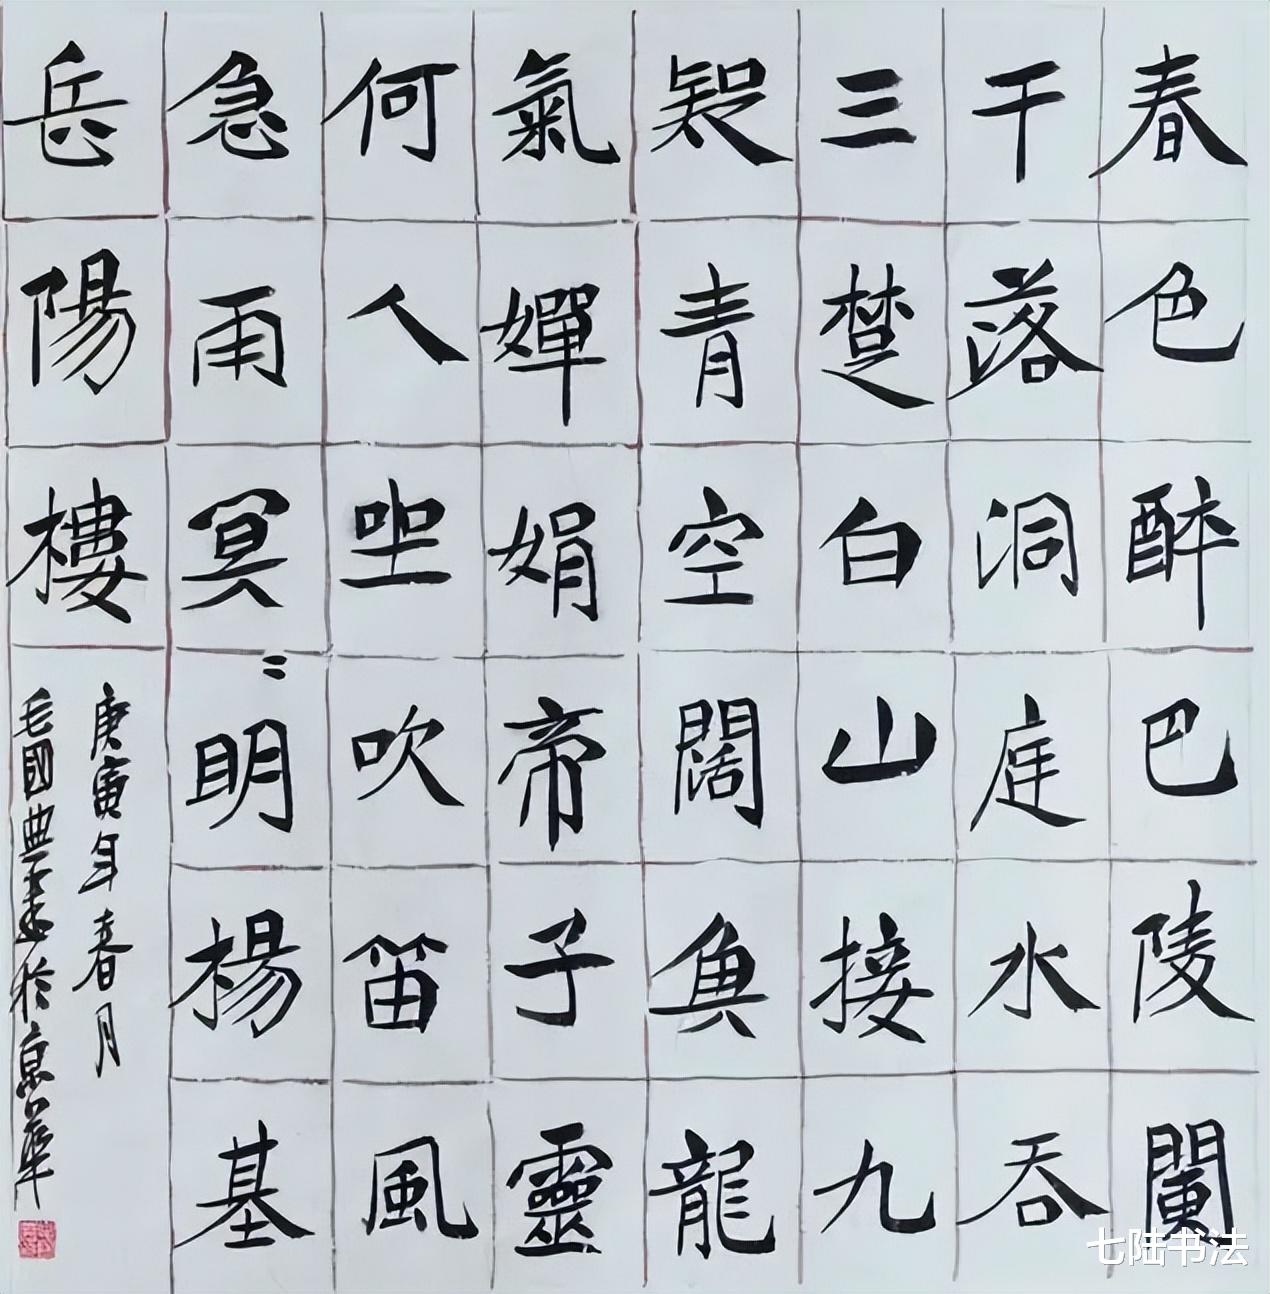 春色醉巴陵闌
干落洞庭水吞
三楚白山接九
疑青空闊魚龍
氣嬋娟帝子靈
何人坐吹笛風
急雨冥〻明楊基
岳陽樓
庚寅年春月
毛國典書於京華
七陆书法